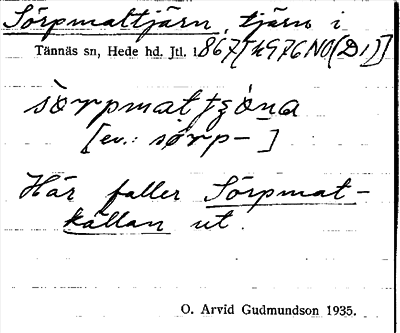 Sörpmattjärn, tjärn i
Tännäs sn, Hede hd. Jtl. 1867[4976NO(D1)]
sörpmattjǝ̀ṇa
[ev.: sørp- ]
Här faller Sörpmat-
källan ut.
O. Arvid Gudmundson 1935.